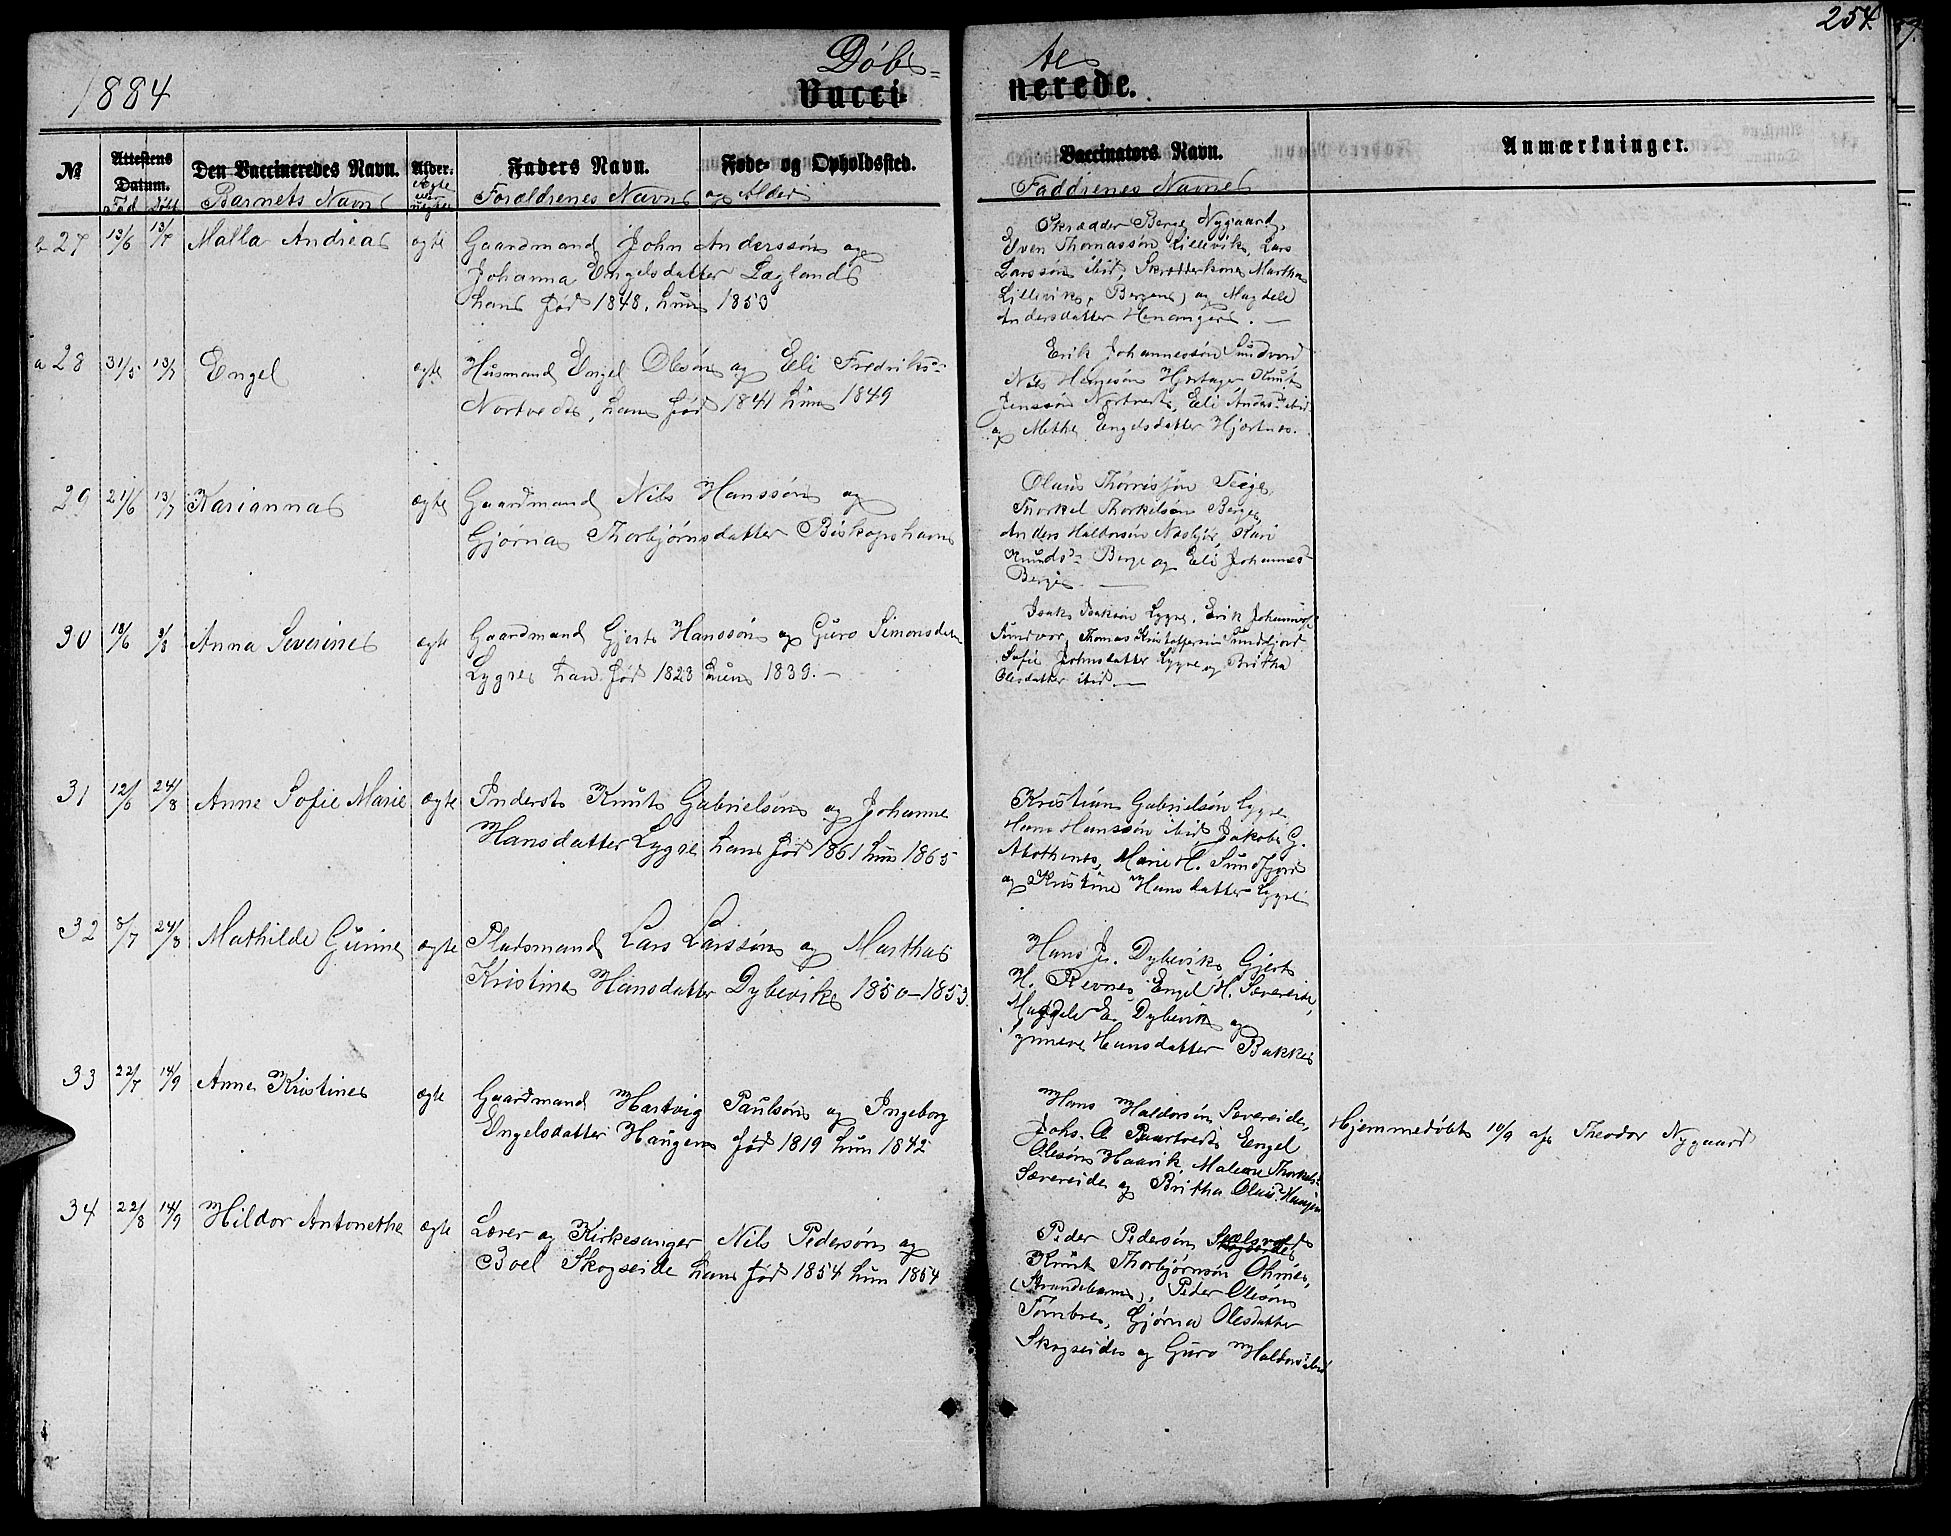 254
1884
Døbte
Vaccinerede.
№
Attestens Datum.
Den Vaccineredes Navn.
Alder.
Faders Navn.
Føde- og Opholdssted.
Vaccinators Navn.
Anmærkninger.
Fød Døbt
Barnets Navn
Ægte eller uægte
Forældrenes Navn og Alder
Faddrenes Navne
27 13/6 13/7 Malla Andrea ægte Gaardmand John Anderssøn og
Johanna Engelsdatter Lægland
han fød 1848, hun 1853
Skrædder Berge Nygaard,
Even Thomassøn Lillevik, Lars
Larssøn ibid, Skrædderkone Martha
Lillevik, Bergen, og Magdele
Andersdatter Henanger.
a 28 31/5 13/7 Engel ægte Husmand Engel Olesøn og Eli Fredriksd.
Nortvedt, han fød 1841 hun 1849
Erik Johannessøn Sundvor
Nils Hjertager Knut
Jenssøn Nortvedt, Eli Andersd. ibid
og Methe Engelsdatter Hjertnes.
29 21/6 13/7 Karianna ægte Gaardmand Nils Hanssøn og
Gjørna Thorbjørnsdatter Biskopshavn
Olaus Thorrissøn Teige,
Thorkel Thorkelsøn Berge
Anders Haldorsøn Nesbjør, Kari
Knudsd. Berge og Eli Johannesd.
Berge
30 18/6 3/8 Anna Severine ægte Gaardmand Gjert Hanssøn og Guro Simonsdatter
Lygre han fød 1823 hun 1839.
Isak Isaksøn Lygre, Erik Johannesøn
Sundvor, Thomas Kristoffersøn Sundfjord
Sofie Johnsdatter Lygre og Britha
Olesdatter ibid
31 12/6 24/8 Anne Sofie Marie ægte Inderst Knut Gabrielsøn og Johanne
Hansdatter Lygre han fød 1861 hun 1865
Kristian Gabrielsøn Lygre,
Hans Hanssøn ibid Jakob G.
Marie H. Sundfjord
og Kristine Hansdatter Lygre
32 8/7 24/8 Mathilde Gurine ægte Pladsmand Lars Larssøn og Martha
Kristine Hansdatter Dybevik 1850-1853.
Hans Js. Dybevik Gjert
H. Revne Engel H. Sævereide,
Magdele E. Dybevik og
Synneve Hansdatter Bakke
33 22/7 14/9 Anne Kristine ægte Gaardmand Hartvig Paulsøn og Ingeborg
Engelsdatter Haugen fød 1819 hun 1842
Hans Haldorsøn Sævereide,
Johs. A. Engel
Olesøn Haavik, Malene Thorkelsd.
Sævereide og Britha Olausd. Haugen
Hjemmedøbt 10/9 af Theodor Nygaard
34 22/8 14/9 Hildor Antonethe ægte Lærer og Kirkesanger Nils Pedersøn og
Boel Skogseide han fød 1854 hun 1854
Peder Pedersøn Sælsvold
Knut Thorbjørnsøn Ohnes,
(Strandebarm), Peder Olesøn
Tombre, Gjørna Olesdatter
Skogseide og Guro Haldorsd. ibid